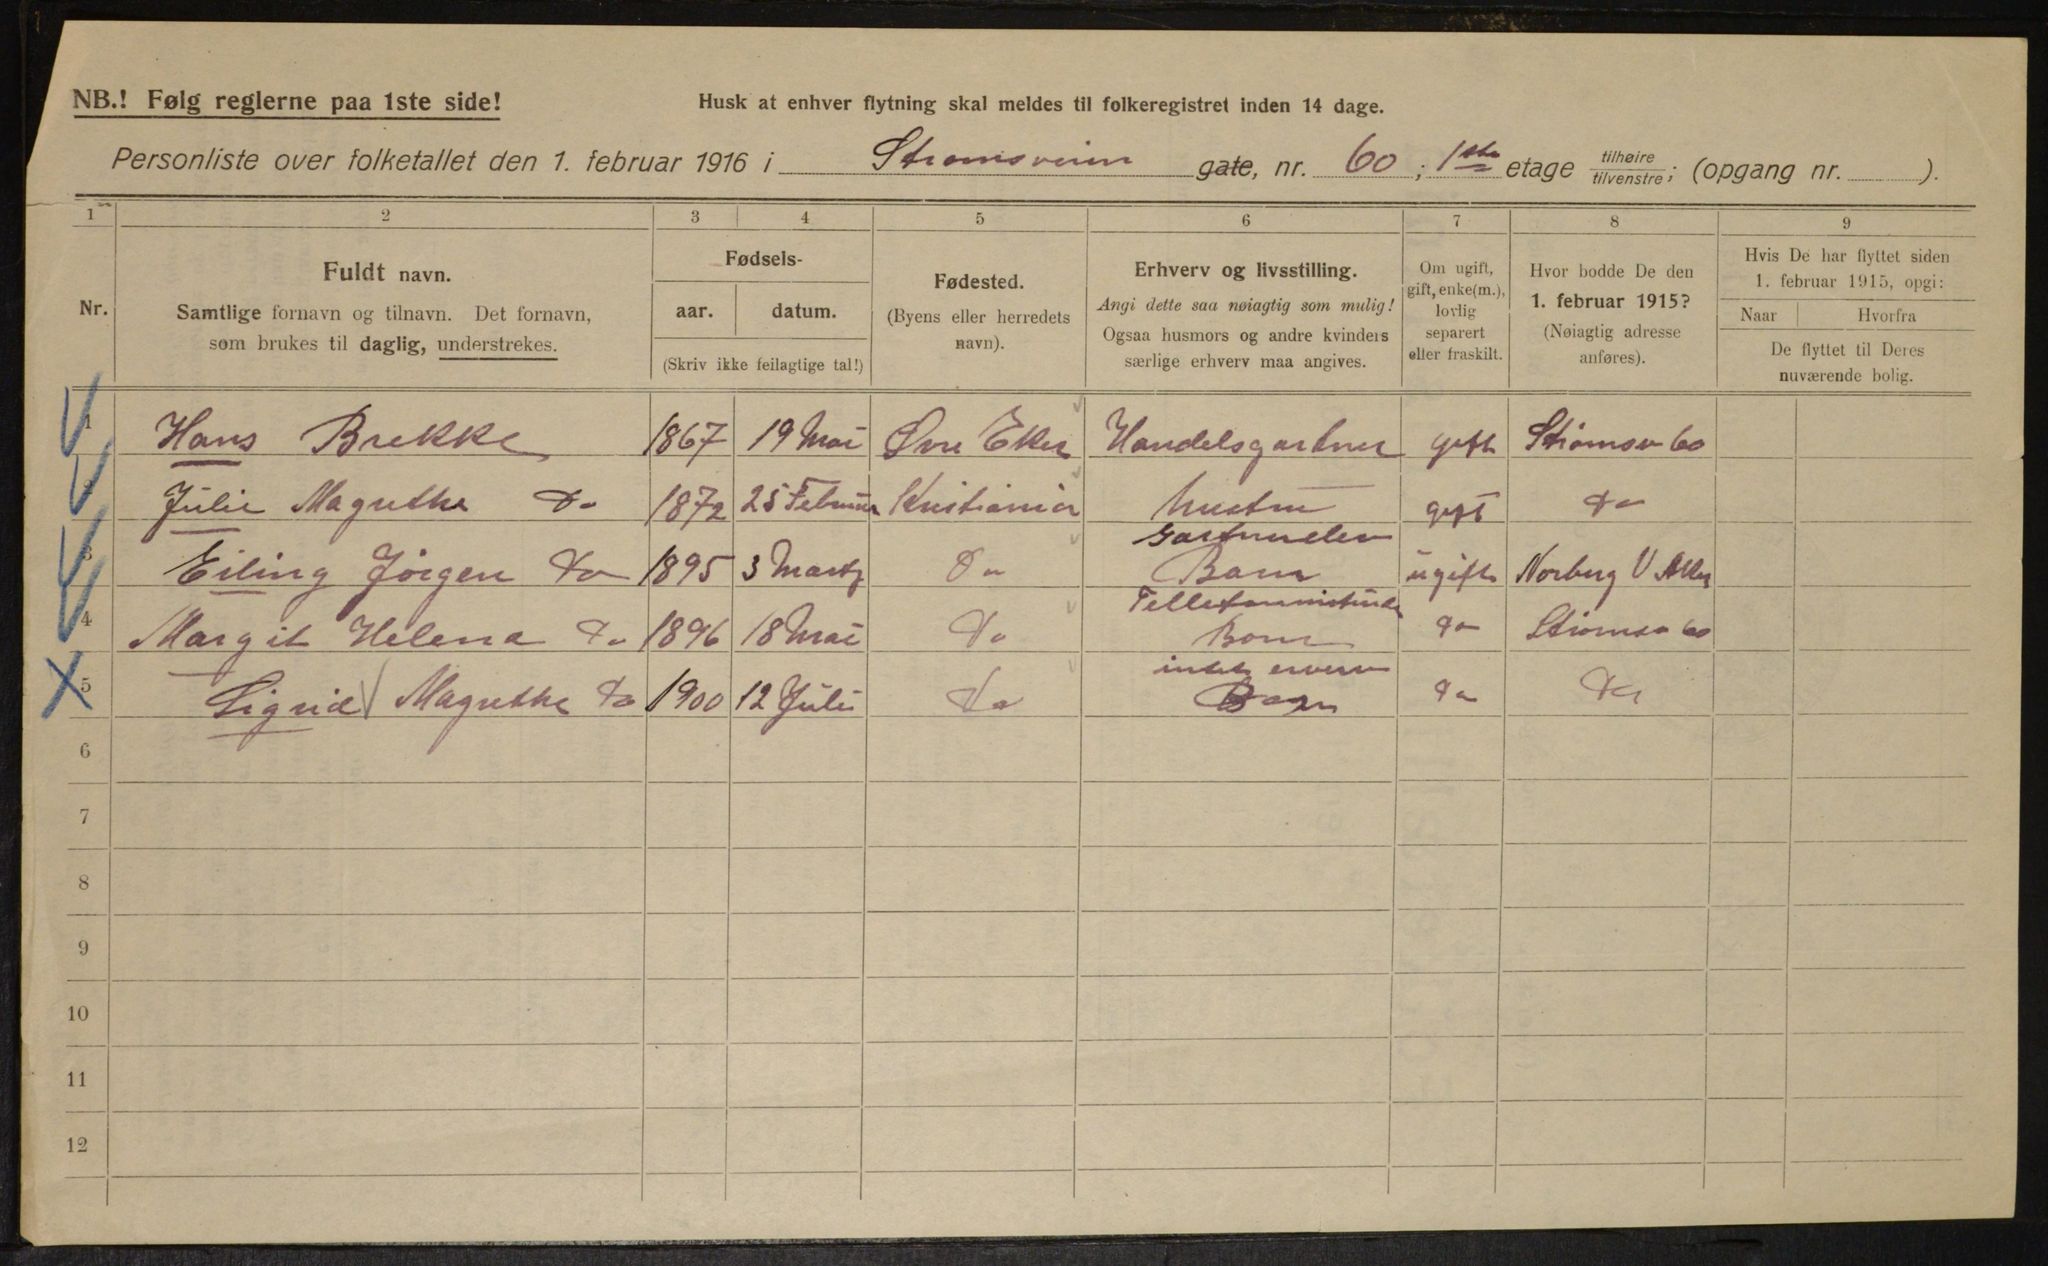 NB.! Følg reglerne paa 1ste side!
Husk at enhver flytning skal meldes til folkeregistret inden 14 dage.
Personliste over folketallet den 1. februar 1916 i Strømsveien gate, nr. 60; 1ste etage tilhøire tilvenstre; (opgang nr. ).
1 2 3 4 5 6 7 8 9
Nr.
Fuldt navn.
Samtlige fornavn og tilnavn. Det fornavn,
som brukes til daglig, understrekes.
Fødsels-
aar. datum.
(Skriv ikke feilagtige tal!)
Fødested.
(Byens eller herredets
navn).
Erhverv og livsstilling.
Angi dette saa nøiagtig som mulig!
Ogsaa husmors og andre kvinders
særlige erhverv maa angives.
Om ugift,
gift, enke(m.),
lovlig
separert
eller fraskilt.
Hvor bodde De den
1. februar 1915?
(Nøiagtig adresse
anføres).
Hvis De har flyttet siden
1. februar 1915, opgi:
Naar Hvorfra
De flyttet til Deres
nuværende bolig.
1 Hans Brekke 1867 19 Mai Øvre Eker Handelsgartner gift Strømsv 60
2 Julie Magrethe Do 1872 25 Februar Kristiania Hustru gift Do
3 Eiling Jörgen Do 1895 3 Martz Do Barn ugift Norberg V Aker
4 Margit Helena Do 1896 18 Mai Do Barn Do Strømsv 60
intet erverv
5 Sigrid Magrethe Do 1900 12 Juli Do Barn Do Do
6
7
8
9
10
11
12